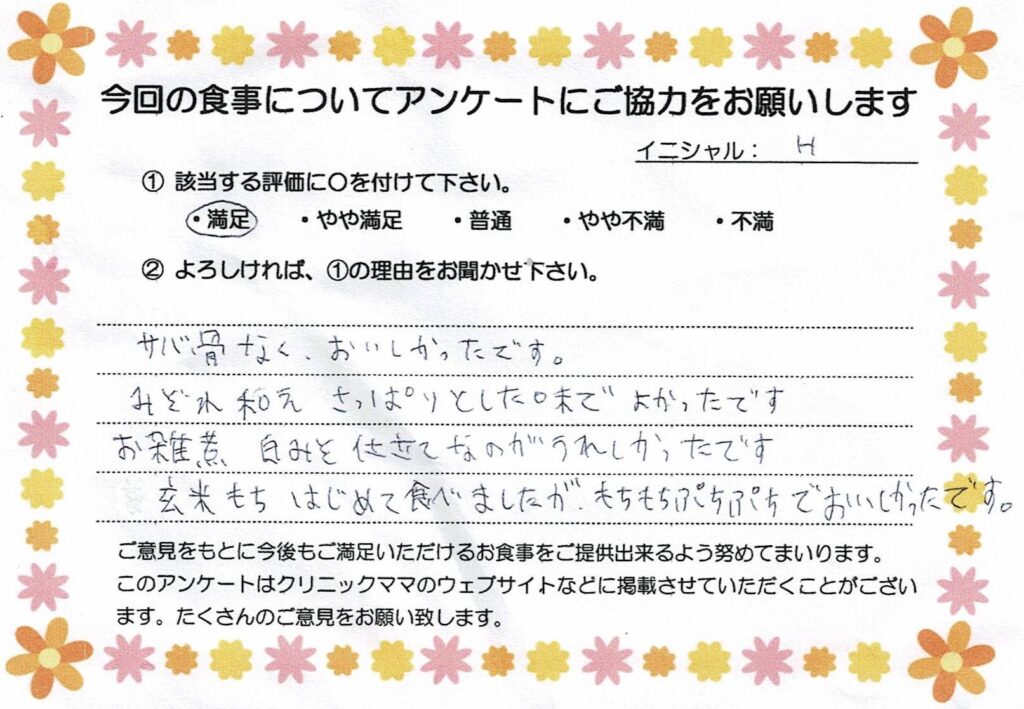 今回の食事についてアンケートにご協力をお願いします
イニシャル： H
① 該当する評価に○を付けて下さい。
・満足 ・やや満足 ・普通 ・やや不満 ・不満
② よろしければ、①の理由をお聞かせ下さい。
サバ骨なく、おいしかったです。
みぞれ和え さっぱりとした味でよかったです
お雑煮 白みそ仕立てなのがうれしかったです
玄米もち はじめて食べましたが、もちもちぷちぷちでおいしかったです。
ご意見をもとに今後もご満足いただけるお食事をご提供出来るよう努めてまいります。
このアンケートはクリニックママのウェブサイトなどに掲載させていただくことがござい
ます。たくさんのご意見をお願い致します。